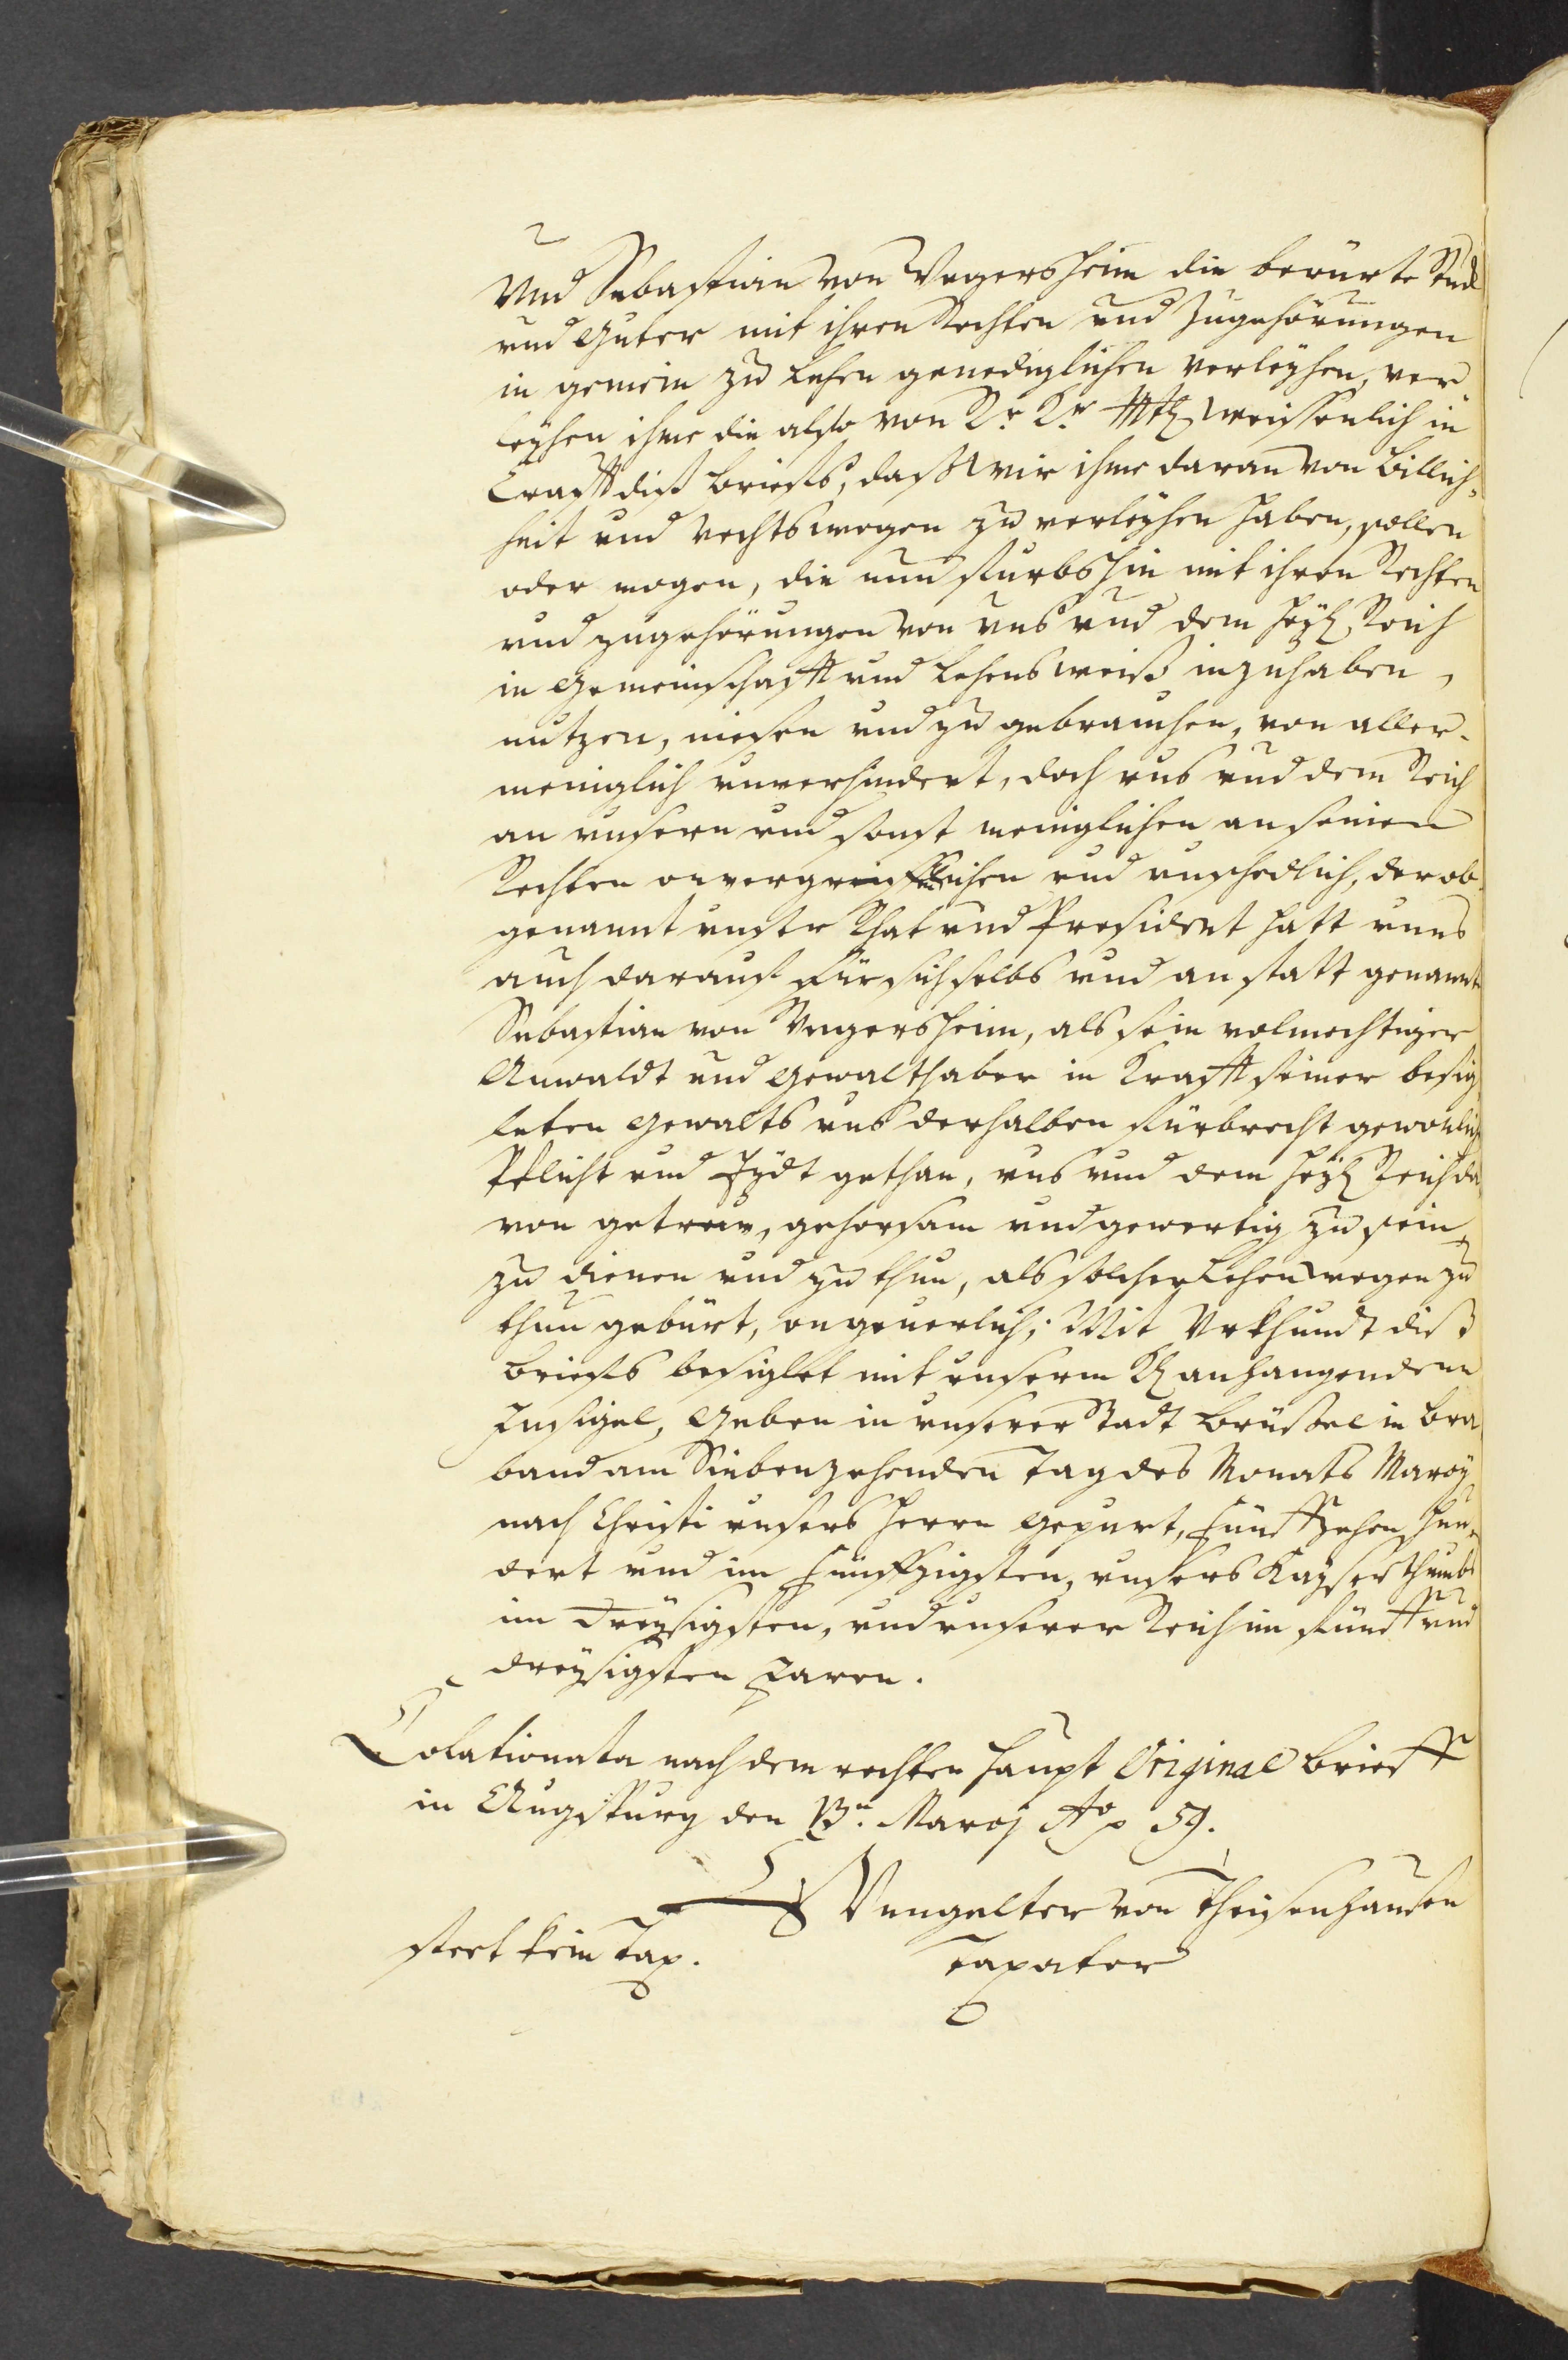 Vnd Sebastian von Vngersheim die berürte Stuck
vnd Güter mit ihren Rechten vnd Zugehörungen
in gemein zu Lehen genediglichen verleyhen, ver
leyhen ihme die also von Rr. Kr. Mtl wissenlich in
Crafft diß brieffs, daß wir ihme daran von billich=
heit vnd rechtswegen zu verleyhen haben, sollen
oder mogen, die nun fürbshin mit ihren Rechten
vnd zugehörungen von vns vnd dem heyl. Reich
in Gemeinschafft vnd Lehensweiß inzuhaben,
nutzen, niesen vnd zu gebrauchen, von aller=
meniglich vnverhindert, doch vns vnd dem Reich
an vnsern vnd sonst meniglichen an seinen
Rechten onvergriffenlichen vnd vnschedlich, der ob
genannt vnser Rhat vnd President hatt vnns
auch darauf für sich selbs vnd anstatt genannts
Sebastian von Vngersheim, als sein volmechtiger
Anwaldt vnd Gewalthaber in Krafft seiner besig
leten Gewalts vns derhalben fürbrecht gewonlich
Pflicht vnd Eydt gethan, vns vnd dem heyl Reich da
von getrew, gehorsam vnd gewertig zu sein,
zu dienen vnd zu thun, als solcher Lehen wegen zu
thun gebürt, ongeuerlich; Mit Vrkhundt diß
brieffs besiglet mit vnserm Kl anhangendem
Insigel, Geben in vnserer Stadt Brüssel in Bra
band am Siebenzehenden Tag des Monats Marcy
nach Christi vnsers Herrn Gepurt, Fünffzehen hun=
dert vnd im Fünffzigsten, vnsers Kayserthumbs
im Dreysigsten, vnd vnserer Reich im fünff vnd
dreysigsten Jaren.
Colationata nach dem rechten haupt Original brieff
in Augspurg den 13n. Marcj Ao p 59.
Vngelter von Theisenhausen
stect kein Tax. Taxator